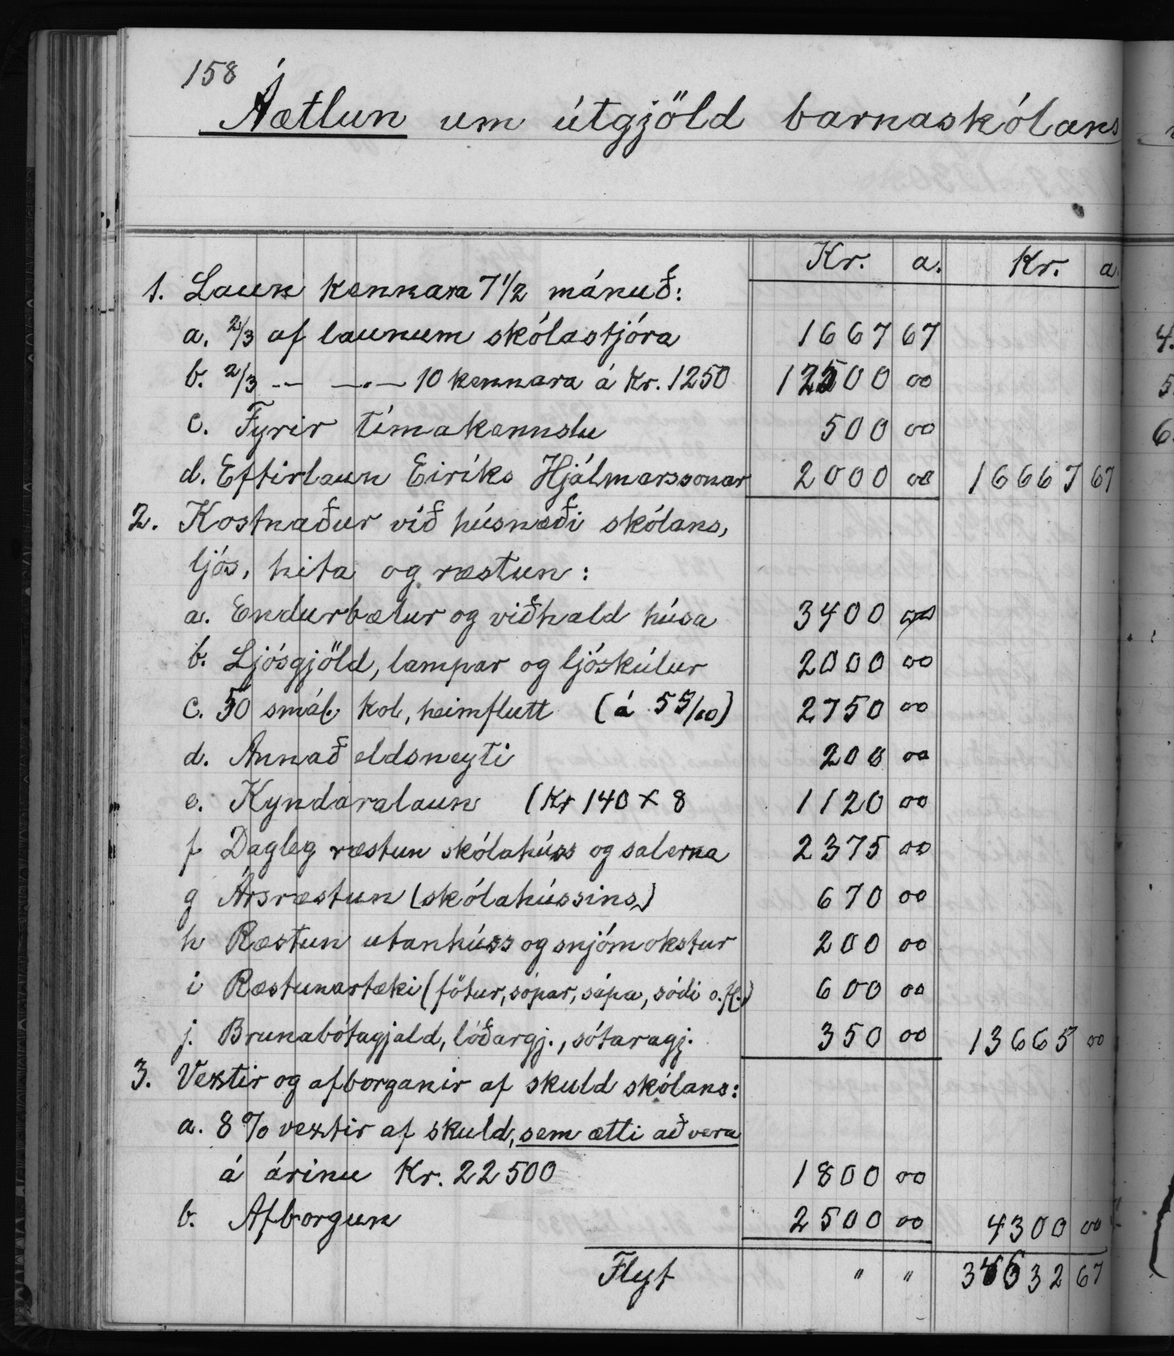 158
Áætlun um útgjöld barnaskólans
Kr. a. Kr. a.
1. Laun kennara 7 1/2 mánuð:
a. 2/3 af launum skólastjóra 1667 67
b. 2/3 -- —.— 10 kennara á Kr. 1250 12500 00
c. Fyrir tímakennslu 500 00
d. Eftirlaun Eiríks Hjálmarssonar 2000 00 16667 67
2. Kostnaður við húsnæði skólans,
ljós, hita og ræstun:
a. Endurbætur og viðhald húsa 3400 00
b. Ljósgjöld, lampar og ljóskúlur 2000 00
c. 50 smál. kol, heimflutt (á 55/00) 2750 00
d. Annað eldsneyti 200 00
e. Kyndaralaun (Kr 140 x 8 1120 00
f Dagleg ræstun skólahúss og salerna 2375 00
g Ársræstun (skólahússins) 670 00
h Ræstun utanhúss og snjómokstur 200 00
i Ræstunartæki (fötur, sópar, sápa, sódi o.fl.) 600 00
j. Brunabótagjald, lóðargj., sótaragj. 350 00 13665 00
3. Vextir og afborganir af skuld skólans:
a. 8% vextir af skuld, sem ætti að vera
á árinu Kr. 22500 1800 00
b. Afborgun 2500 00 4300 00
Flyt " " 34632 67
4.
5
6